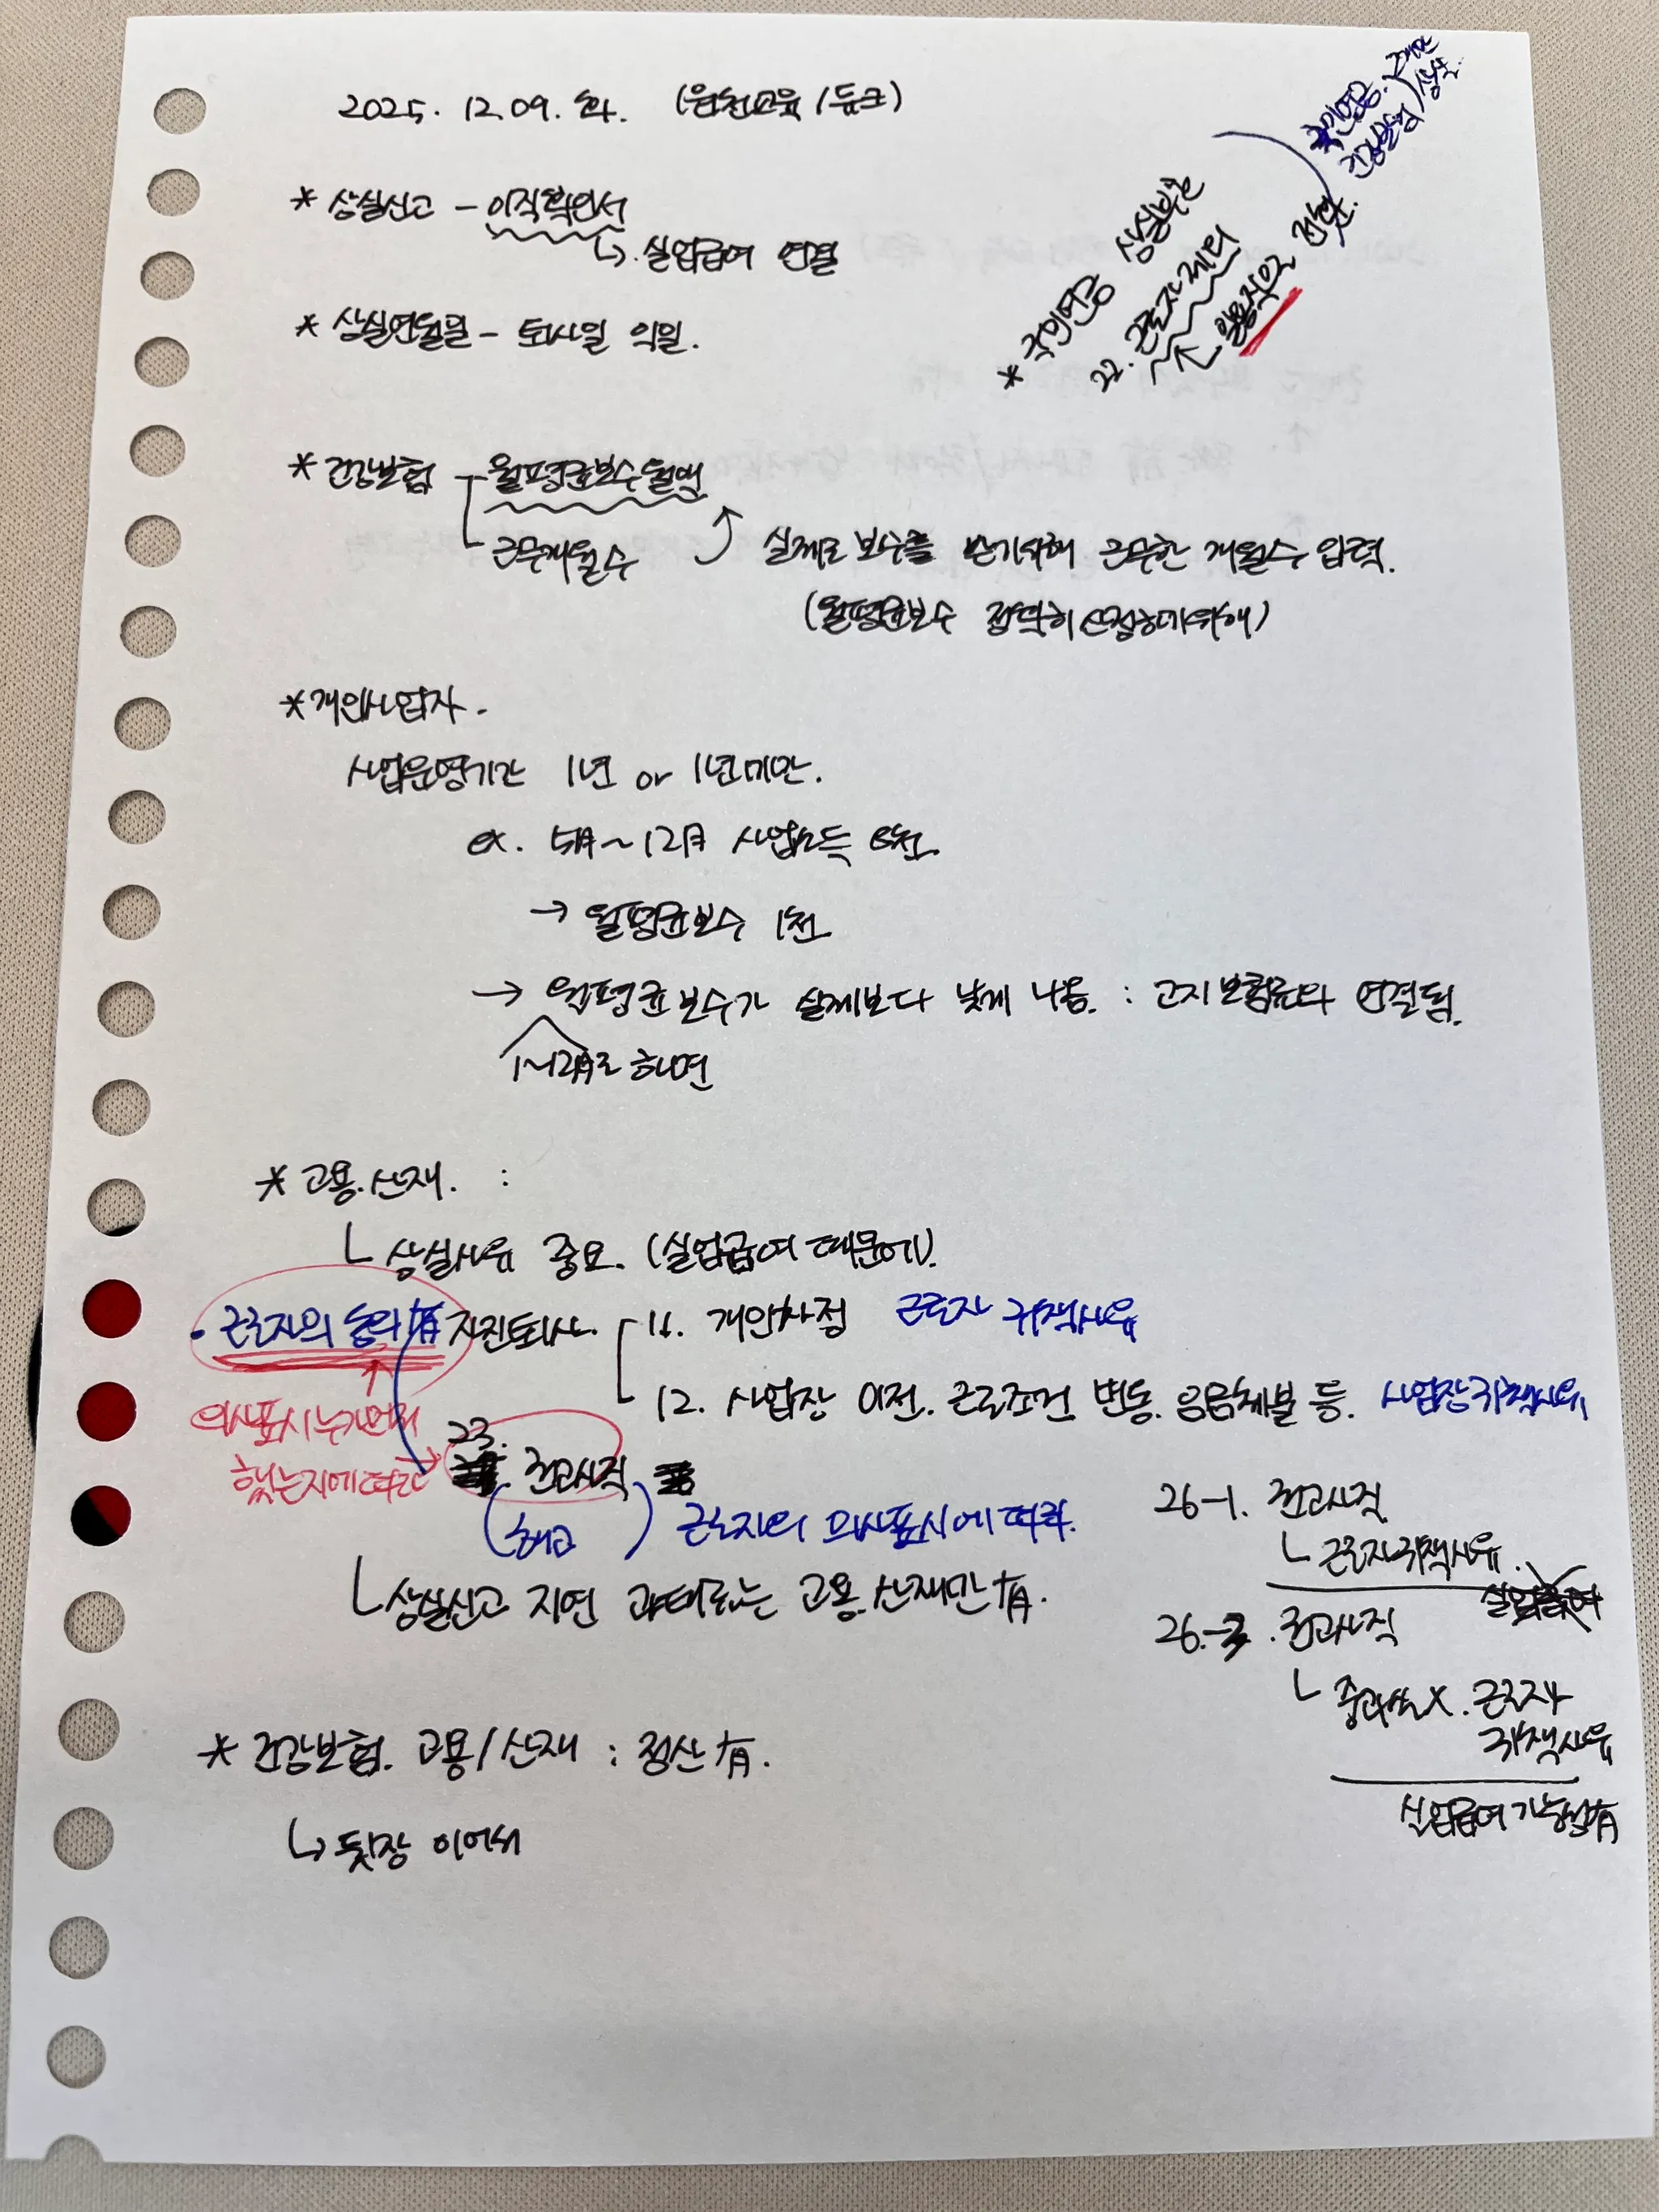 2025. 12. 09. 화. (원천교육/듀크)
* 상실신고 - 이직확인서
↳ 실업급여 연결
* 상실연월일 - 퇴사일 익일.
* 국민연금 상실부호
22. 근로자 제외
↖ 일용직으로 전환.
국민연금. 근로자
건강보험) 상실.
* 건강보험 - 월평균보수월액
근무개월수 실제로 보수를 받기위해 근무한 개월수 입력.
(월평균보수 정확히 산정하기위해)
* 개인사업자 -
사업운영기간 1년 or 1년미만.
ex. 5月~12月 사업소득 8천.
→ 월평균보수 1천
→ 월평균보수가 실제보다 낮게 나옴. : 고지보험료와 연결됨.
1~12月로 하면
* 고용.산재. :
└ 상실사유 중요. (실업급여 때문에).
· 근로자의 동의 有 자진퇴사. 11. 개인사정 근로자 귀책사유
12. 사업장 이전. 근로조건 변동. 임금체불 등. 사업장귀책사유
의사표시 누가먼저
했는지에 따라 → 23. 권고사직
(해고) 근로자의 의사표시에 따라.
└ 상실신고 지연 과태료는 고용.산재만 有.
26-1. 권고사직
└ 근로자귀책사유.
실업급여
26-3. 권고사직
└ 중과실X. 근로자
귀책사유
실업급여 가능성有
* 건강보험. 고용/산재 : 정산 有.
↳ 뒷장 이어서